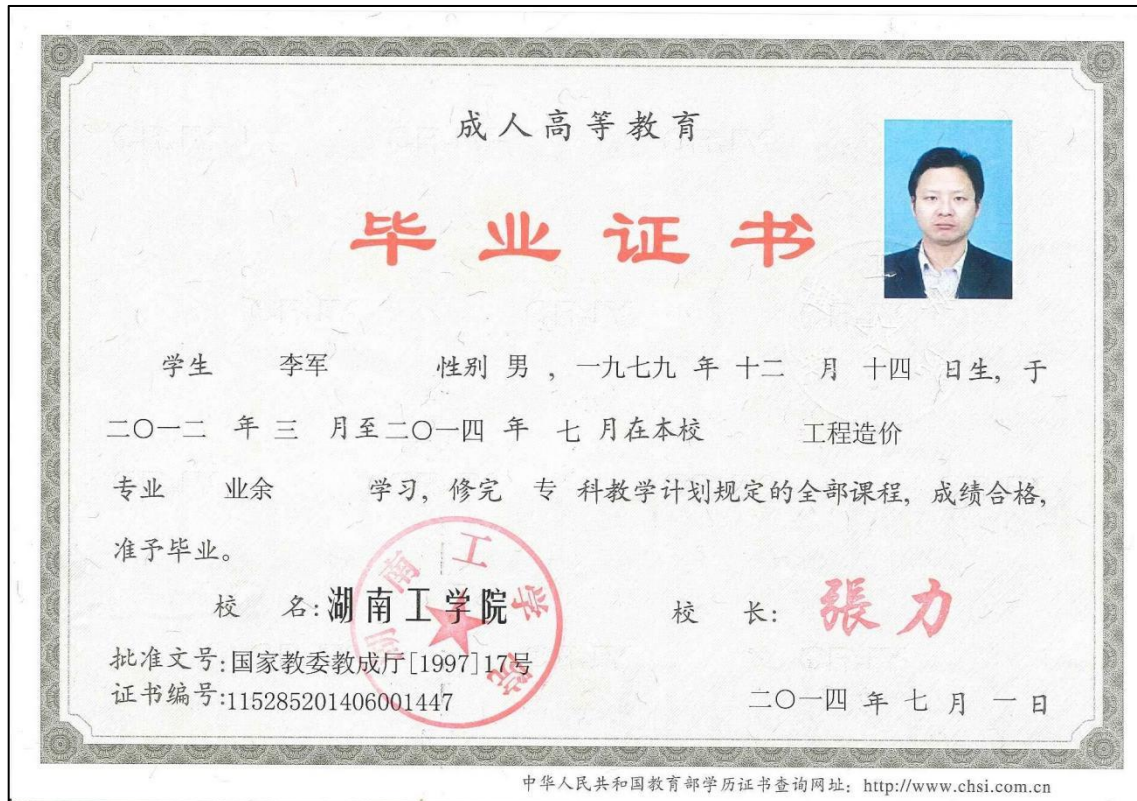 成人高等教育
毕业证书
学生 李军 性别 男 , 一九七九 年 十二 月 十四 日生, 于
二〇一二 年 三 月至二〇一四 年 七 月在本校 工程造价
专业 业余 学习, 修完 专 科教学计划规定的全部课程, 成绩合格,
准予毕业。
校 名: 湖南工学院
湖南工学院
校 长: 張力
批准文号: 国家教委教成厅[1997]17号
证书编号: 115285201406001447
二〇一四 年 七 月 一 日
中华人民共和国教育部学历证书查询网址: http://www.chsi.com.cn